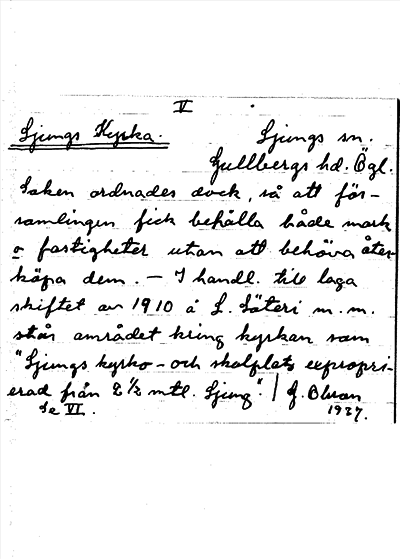 V
Ljungs Kyrka.
Ljungs sn.
Gullbergs hd. Ögl.
Saken ordnades dock, så att för-
samlingen fick behålla både mark
o fastigheter utan att behöva åter-
köpa dem. – I handl. till laga
skiftet av 1910 å L. Säteri m. m.
står området kring kyrkan som
"Ljungs kyrko- och skolplats expropri-
erad från 2 1/2 mtl. Ljung". /
Se VI.
1937.